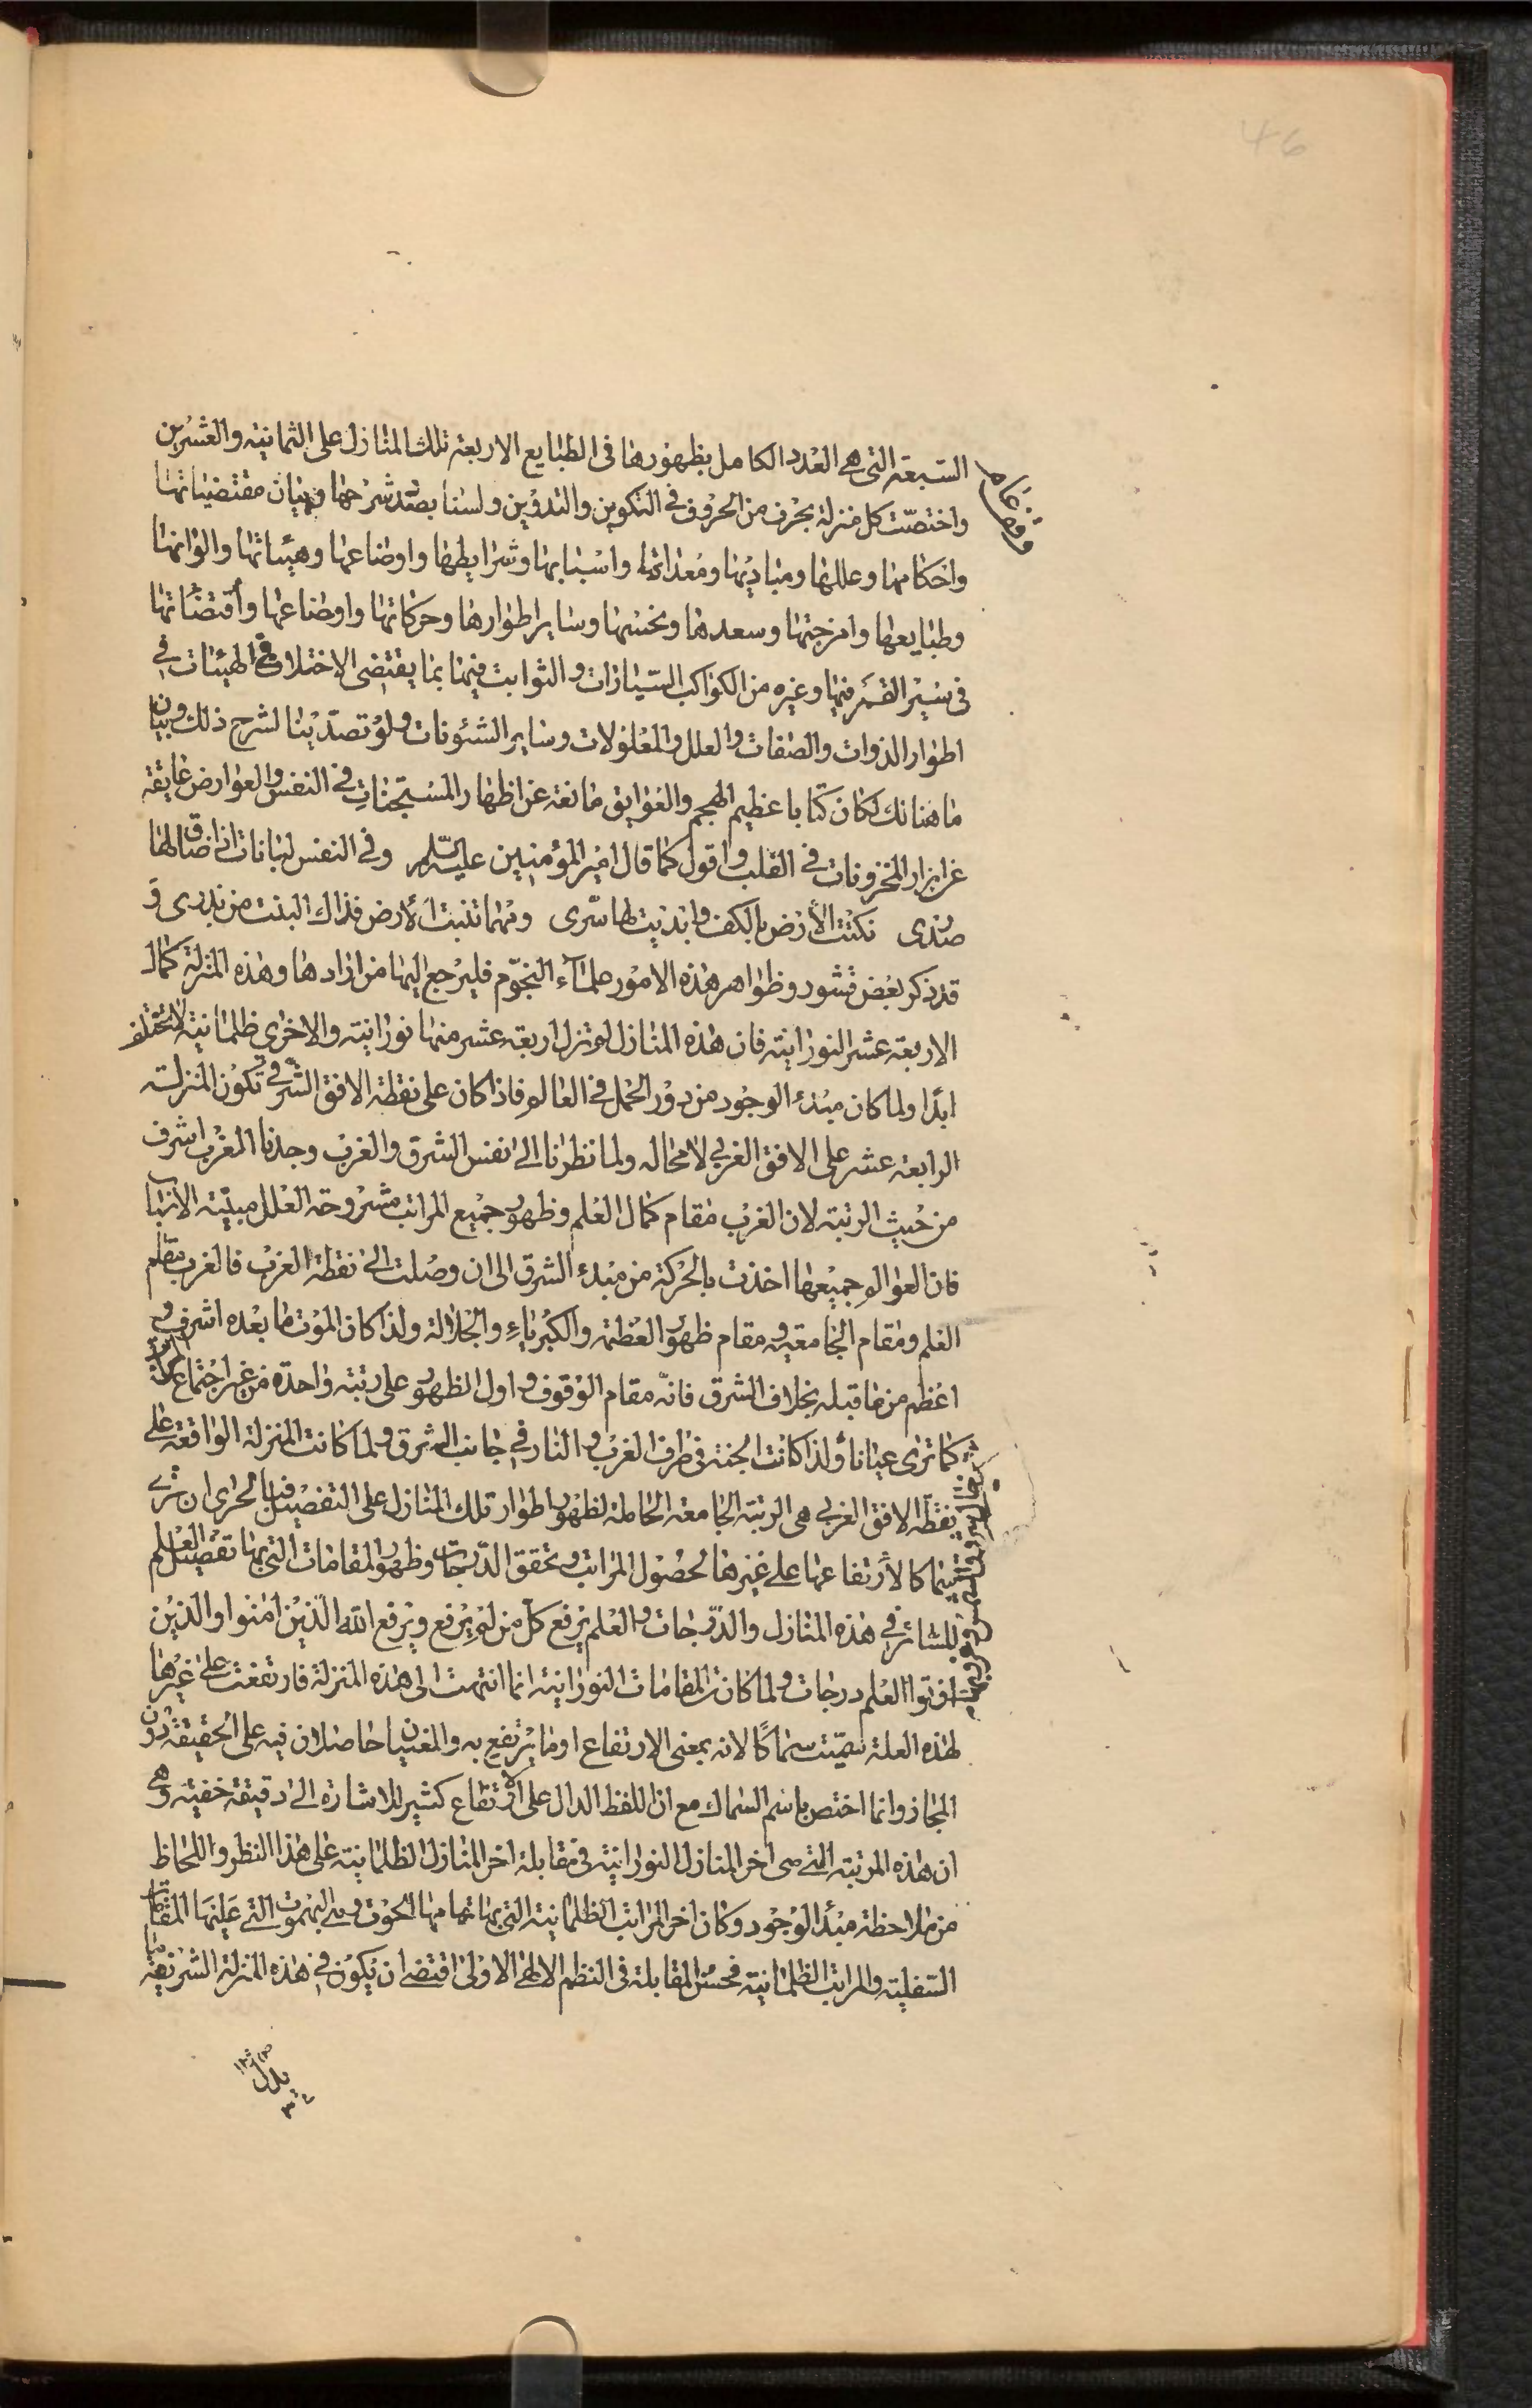 46
السبعة التى هى العدد الكامل بظهورها فى الطبايع الاربعة تلك المنازل على الثمانية والعشرين
واختصّت كل منزلة بحرف من الحروف فى التكوين والتدوين ولسنا بصدد شرحها وبيان مقتضياتها
واحكامها وعللها ومباديها ومعداتها واسبابها وشرايطها واوضاعها وهيئاتها والوانها
وطبايعها وامزجتها وسعدها ونحسها وساير اطوارها وحركاتها واوضاعها واقتضاآتها
فى سير القمر فيها وغيره من الكواكب السيّارات والثوابت فيها بما يقتضى الاختلاف فى الهيئات فى
اطوار الذوات والصفات والعلل والمعلولات وساير الشئونات ولو تصدّينا لشرح ذلك وبيان
ما هنالك لكان كتابا عظيم الحجم والعوايق مانعة عن اظهار المستجنات فى النفس والعوارض عايقة
عن ابراز المخزونات فى القلب واقول كما قال امير المؤمنين عليه السّلم وفى النفس لبانات اذا ضاق لها
صدرى نكتّ الأرض بالكف وابديت لها سّرى ومهما تنبت الأرض فذاك النبت من بذرى و
قد ذكر بعض قشور وظواهر هذه الامور علمآء النجوم فليرجع اليها من ارادها وهذه المنزلة كمال
الاربعة عشر النورانية فان هذه المنازل لم تزل اربعة عشر منها نورانية والاخرى ظلمانية لا تختلف
ابدا ولما كان مبدء الوجود من دور الحمل فى العالم فاذا كان على نقطة الافق الشرقى تكون المنزلة
الرابعة عشر على الافق الغربى لا محاله ولما نظرنا الى نفس الشرق والغرب وجدنا المغرب اشرف
من حيث الرتبة لان الغرب مقام كمال العلم وظهور جميع المراتب مشروحة العلل مبيّنة الاسباب
فان العوالم جميعها اخذت بالحركة من مبدء الشرق الى ان وصلت الى نقطة الغرب فالغرب مقام
العلم ومقام الجامعية ومقام ظهور العظمة والكبرياء والجلالة ولذا كان الموت وما بعده اشرف و
اعظم من ما قبله بخلاف الشرق فانّه مقام الوقوف واول الظهور على رتبة واحدة من غير اجتماع
كما ترى عيانا ولذا كانت الجنة فى طرف الغرب والنار فى جانب الشرق ولما كانت المنزلة الواقعة على
نقطة الافق الغربى هى الرتبة الجامعة الحاملة لظهور اطوار تلك المنازل على التفصيل فبالحرى ان
سماكا لارتفاعها على غيرها لحصول المراتب وتحقق الدرجات وظهور المقامات التى بها تفصيل العلم
للسائر فى هذه المنازل والدّرجات والعلم يرفع كل من لم يرفع ويرفع الله الّذين امنوا والذين
اوتوا العلم درجات ولما كانت المقامات النورانية انما انتهت الى هذه المنزلة فارتفعت على غيرها
لهذه العلة سمّيت سماكًا لانه بمعنى الارتفاع او ما يرتفع به والمعنيان حاصلان فيه على الحقيقة دون
المجاز وانما اختص باسم السماك مع ان اللفظ الدال على الارتفاع كثير للاشارة الى دقيقة خفية وهى
ان هذه المرتبة التى هى اخر المنازل النورانية فى مقابلة اخر المنازل الظلمانية على هذا النظر واللحاظ
من ملاحظة مبدأ الوجود وكان اخر المراتب الظلمانية التى بها تمامها الحوت وهى البهموت التى عليها المقامات
السفلية والمراتب الظلمانية فحسن المقابلة فى النظم الالهى الاولى اقتضى ان يكون فى هذه المنزلة الشريفة